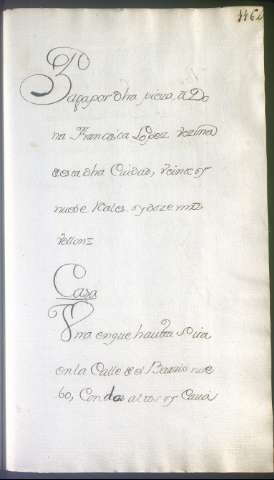 Paga por dha pieza, á Do
na Francisca Lopez vezina
de esa dha Ciudad, Veinte y
nuebe Reales, y doze mrs
vellon =
Casa
Una en que havita dha
en la Calle de el Barrio nue
bo, Con dos altos y Cava